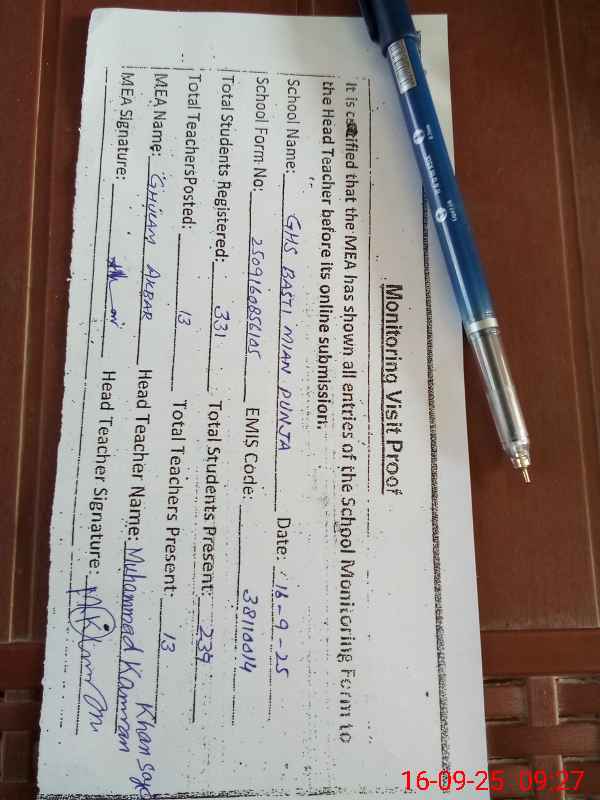 Monitoring Visit Proof
It is certified that the MEA has shown all entries of the School Monitoring Form to
the Head Teacher before its online submission.
School Name: GHS BASTI MIAN PUNJA Date: 16-9-25
School Form No: 250916085610S EMIS Code: 38110014
Total Students Registered: 331 Total Students Present: 239
Total TeachersPosted: 13 Total Teachers Present: 13
MEA Name: GHULAM AKBAR Head Teacher Name: Muhammad Kamran Khan
MEA Signature: Head Teacher Signature:
16-09-25 09:27